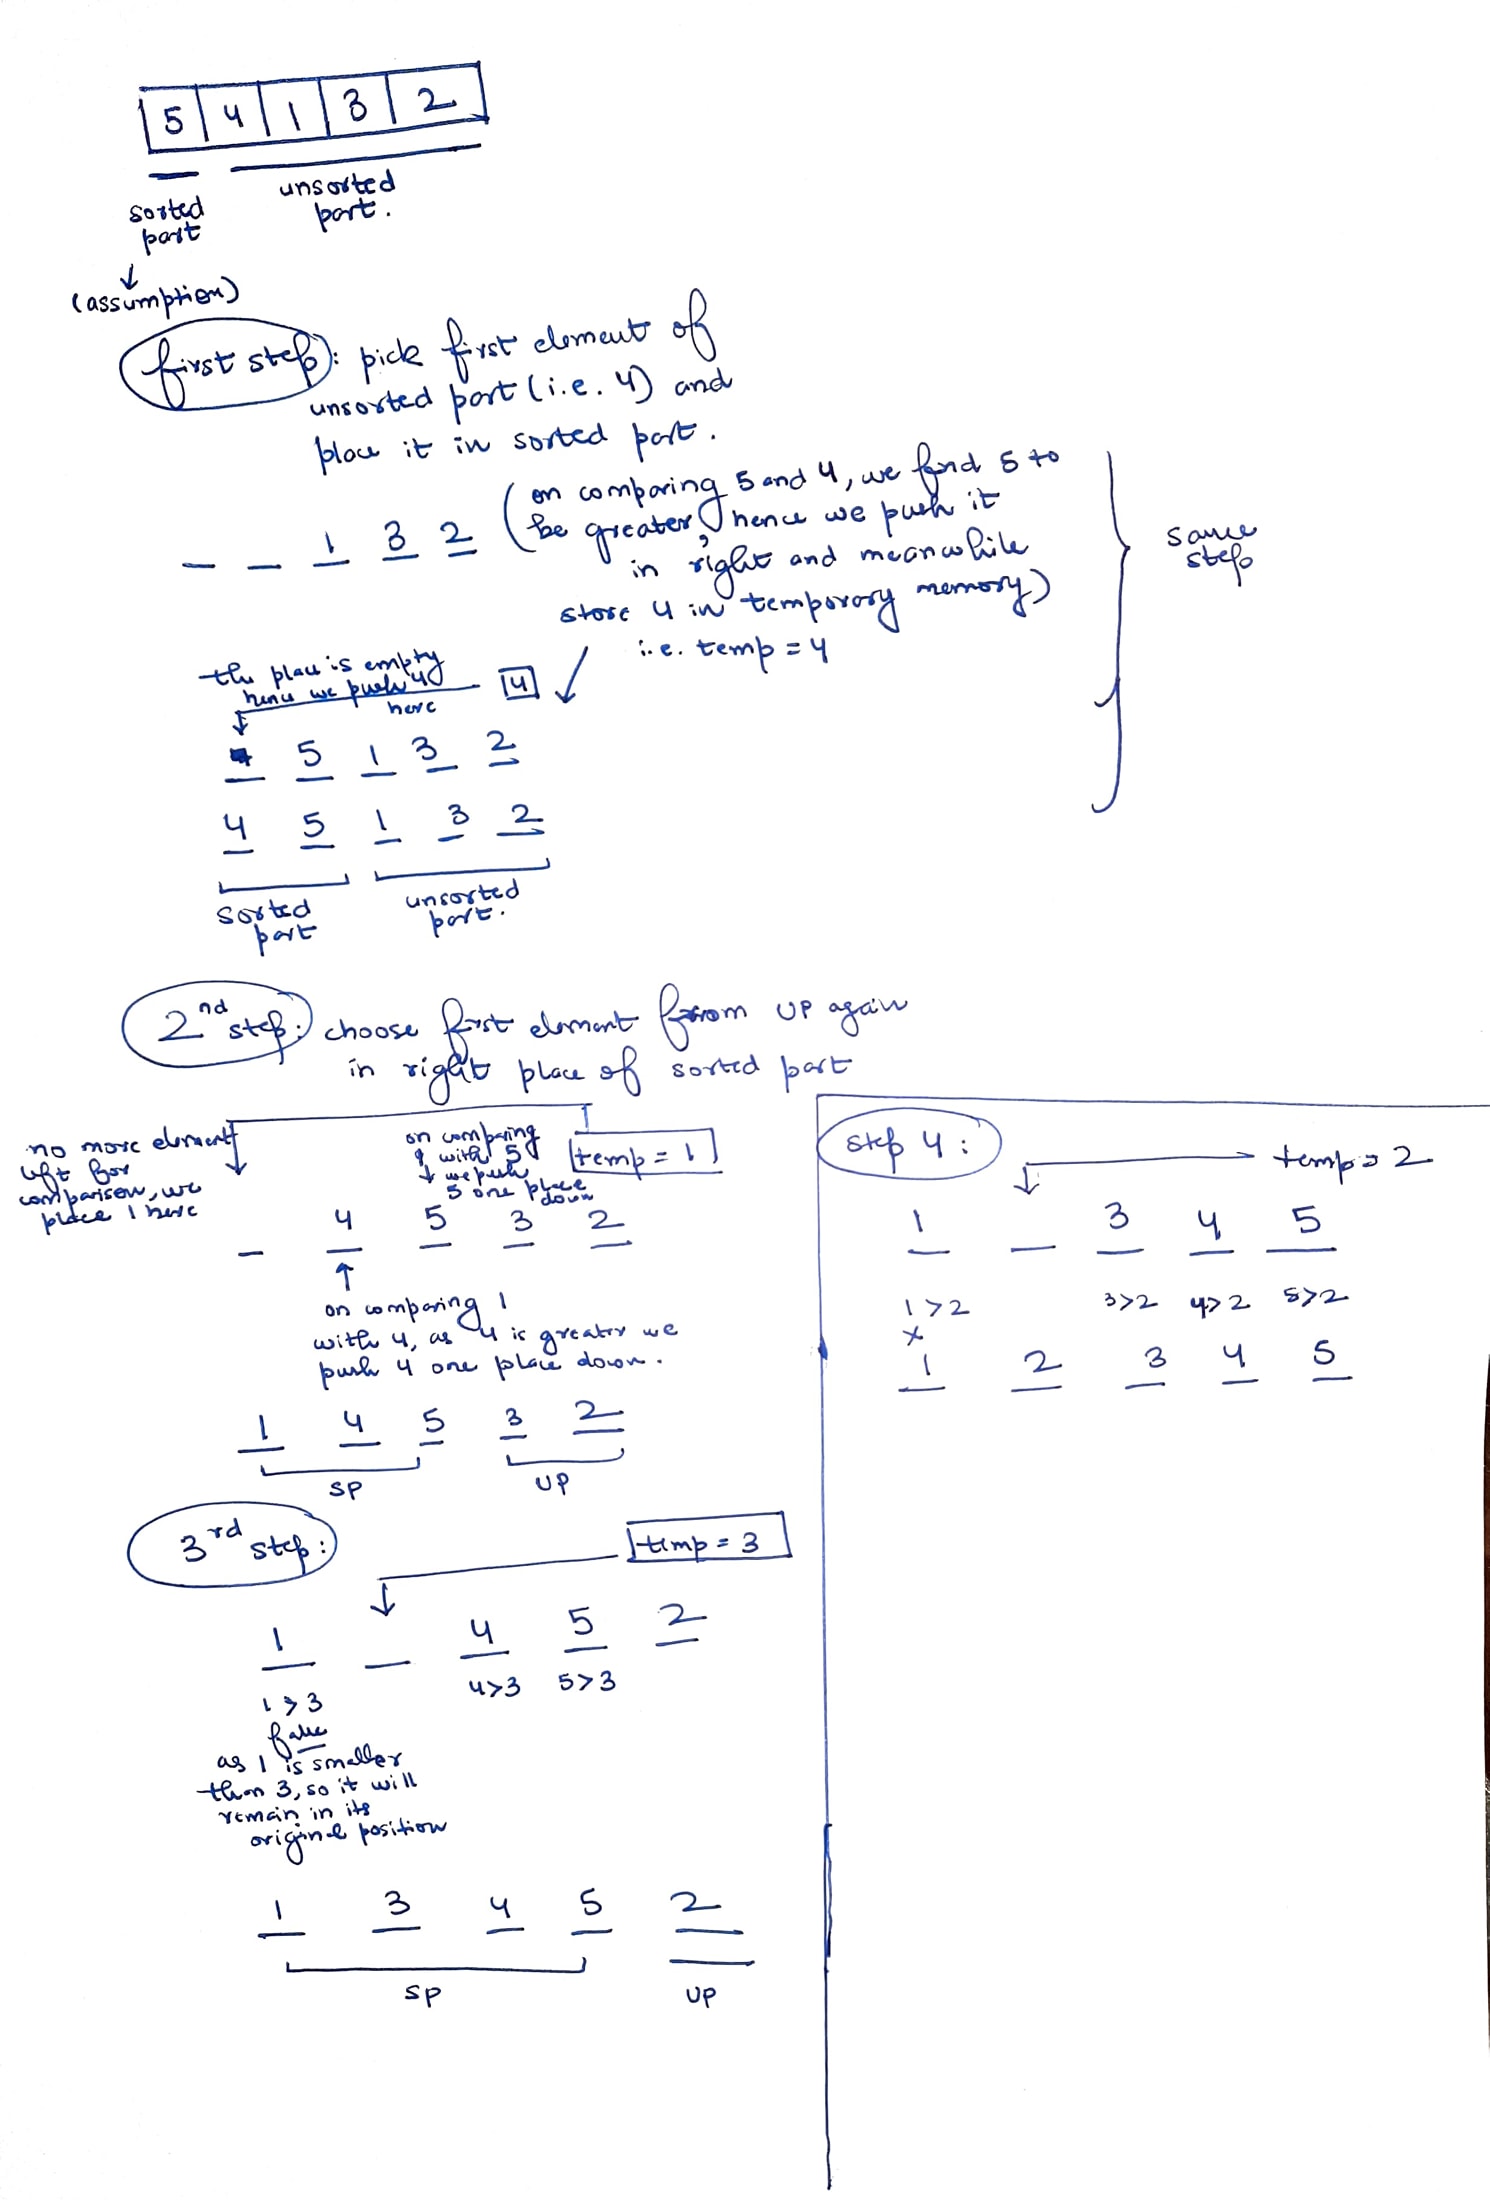 5 4 1 3 2
sorted
part
unsorted
part.
(assumption)
first step: pick first element of
unsorted part (i.e. 4) and
place it in sorted part.
_ _ 1 3 2
(on comparing 5 and 4, we find 5 to
be greater, hence we push it
in right and meanwhile
store 4 in temporary memory)
i.e. temp = 4
same
step
the place is empty
hence we push 4
here
4
5 1 3 2
4 5 1 3 2
sorted
part
unsorted
part.
2nd step: choose first element from UP again
in right place of sorted part
no more element
left for
comparison, we
place 1 here
on comparing
with 5
we push
5 one place
down
temp = 1
_ 4 5 3 2
on comparing 1
with 4, as 4 is greater we
push 4 one place down.
1 4 5 3 2
SP
UP
3rd step:
temp = 3
1 _ 4 5 2
1 > 3
4>3
5>3
false
as 1 is smaller
than 3, so it will
remain in its
original position
1 3 4 5 2
SP
UP
Step 4:
temp = 2
1 _ 3 4 5
1 > 2
3>2
4>2
5>2
x
1 2 3 4 5